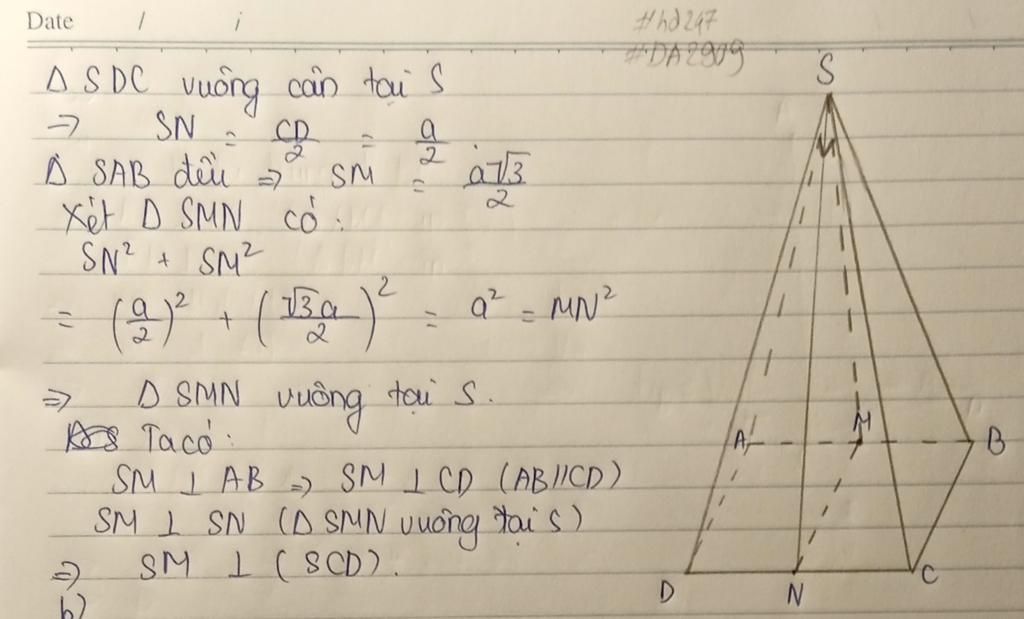 Date / i
#hd247
#DA2909
Δ SDC vuông cân tại S
→ SN = CD/2 = a/2
Δ SAB đều ⇒ SM = a√3/2
Xét Δ SMN có:
SN² + SM²
= (a/2)² + (√3a/2)² = a² = MN²
⇒ Δ SMN vuông tại S.
Ta có:
SM ⊥ AB ⇒ SM ⊥ CD (AB//CD)
SM ⊥ SN (Δ SMN vuông tại S)
⇒ SM ⊥ (SCD).
b)
S
A M B
D N C